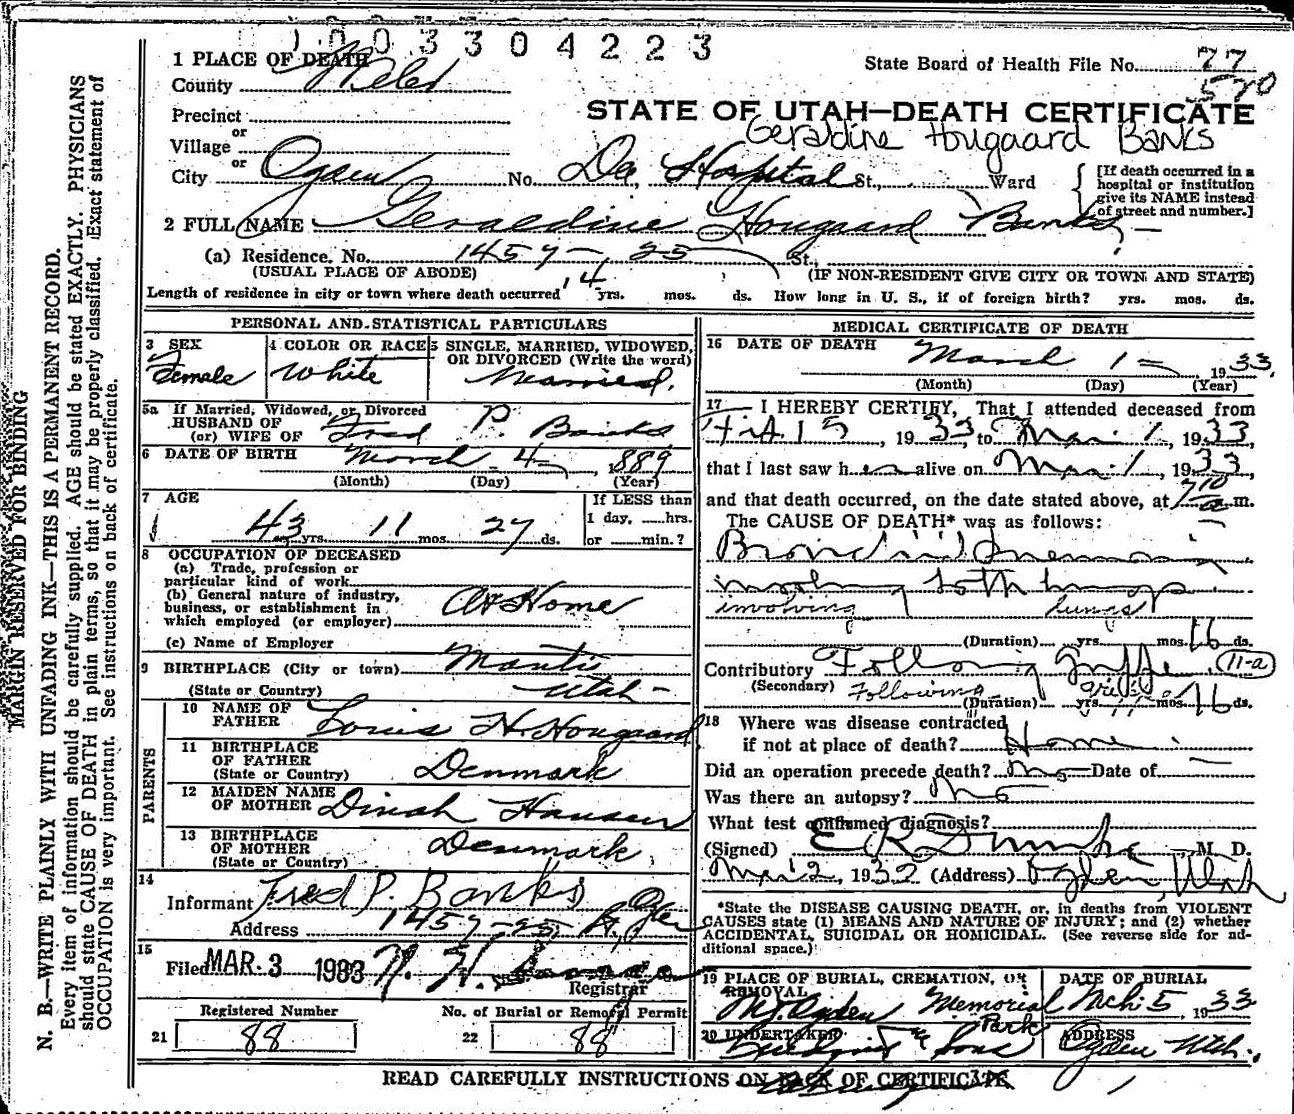 1003304223
1 PLACE OF DEATH
County Weber
State Board of Health File No. 77
520
Precinct
or
Village
or
STATE OF UTAH—DEATH CERTIFICATE
Geraldine Hougaard Banks
City Ogden No. Dee Hospital St., Ward
[If death occurred in a hospital or institution give its NAME instead of street and number.]
2 FULL NAME Geraldine Hougaard Banks
(a) Residence. No. 1457 – 25 St.,
(USUAL PLACE OF ABODE) (IF NON-RESIDENT GIVE CITY OR TOWN AND STATE)
Length of residence in city or town where death occurred 14 yrs. mos. ds. How long in U. S., if of foreign birth? yrs. mos. ds.
PERSONAL AND STATISTICAL PARTICULARS
3 SEX
Female
4 COLOR OR RACE
White
5 SINGLE, MARRIED, WIDOWED, OR DIVORCED (Write the word)
Married.
5a If Married, Widowed, or Divorced
HUSBAND OF
(or) WIFE OF Fred P. Banks
6 DATE OF BIRTH March – 4 – 1889
(Month) (Day) (Year)
7 AGE
43 yrs. 11 mos. 27 ds.
If LESS than
1 day, hrs.
or min.?
8 OCCUPATION OF DECEASED
(a) Trade, profession or
particular kind of work
(b) General nature of industry,
business, or establishment in
which employed (or employer)
At Home
(c) Name of Employer
9 BIRTHPLACE (City or town) Manti
(State or Country) Utah –
PARENTS
10 NAME OF
FATHER Louis H. Hougaard
11 BIRTHPLACE
OF FATHER
(State or Country) Denmark
12 MAIDEN NAME
OF MOTHER Dinah Hansen
13 BIRTHPLACE
OF MOTHER
(State or Country) Denmark
14
Informant Fred P. Banks
Address 1457–25 St. Ogden
15
Filed MAR. 3 1933
Registrar
Registered Number
21 88
No. of Burial or Removal Permit
22 88
MEDICAL CERTIFICATE OF DEATH
16 DATE OF DEATH March 1 – 1933.
(Month) (Day) (Year)
17 I HEREBY CERTIFY, That I attended deceased from
Feb 15, 1933 to Mar. 1, 1933,
that I last saw her alive on Mar. 1, 1933,
and that death occurred, on the date stated above, at m.
The CAUSE OF DEATH* was as follows:
Bronchial Pneumonia
involving both lungs
involving lungs
(Duration) yrs. mos. 16 ds.
Contributory Following Grippe 11-a
(Secondary) Following Grippe
(Duration) yrs. mos. 16 ds.
18 Where was disease contracted
if not at place of death? Home
Did an operation precede death? No Date of
Was there an autopsy? No
What test confirmed diagnosis?
(Signed) M. D.
Mar 2, 1932 (Address) Ogden, Utah
*State the DISEASE CAUSING DEATH, or, in deaths from VIOLENT
CAUSES state (1) MEANS AND NATURE OF INJURY; and (2) whether
ACCIDENTAL, SUICIDAL OR HOMICIDAL. (See reverse side for ad-
ditional space.)
19 PLACE OF BURIAL, CREMATION, OR
REMOVAL
Mt. Ogden Memorial
Park
DATE OF BURIAL
Mch. 5, 1933
20 UNDERTAKER
& Sons
ADDRESS
Ogden Utah.
READ CAREFULLY INSTRUCTIONS ON BACK OF CERTIFICATE
MARGIN RESERVED FOR BINDING
N. B.—WRITE PLAINLY WITH UNFADING INK—THIS IS A PERMANENT RECORD.
Every item of information should be carefully supplied. AGE should be stated EXACTLY. PHYSICIANS
should state CAUSE OF DEATH in plain terms, so that it may be properly classified. Exact statement of
OCCUPATION is very important. See instructions on back of certificate.